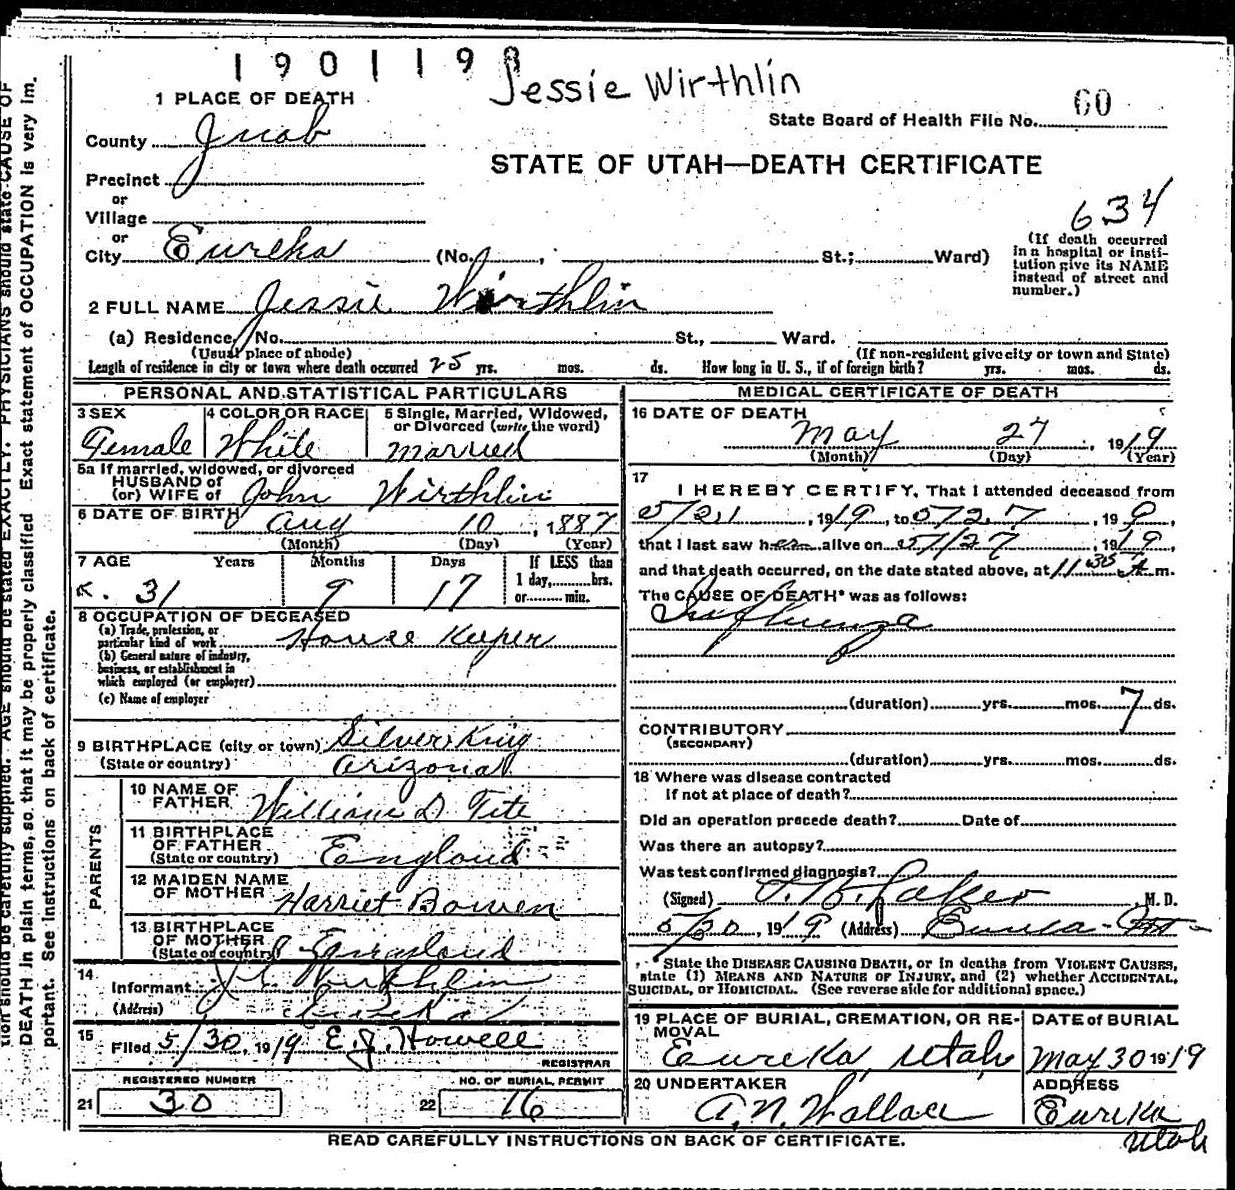 1901198
Jessie Wirthlin
1 PLACE OF DEATH
State Board of Health File No. 60
County Juab
STATE OF UTAH—DEATH CERTIFICATE
Precinct
or
Village
634
or
City Eureka (No. , St.; Ward)
(If death occurred in a hospital or institution give its NAME instead of street and number.)
2 FULL NAME Jessie Wirthlin
(a) Residence, No. St., Ward.
(Usual place of abode) (If non-resident give city or town and State)
Length of residence in city or town where death occurred 25 yrs. mos. ds. How long in U. S., if of foreign birth? yrs. mos. ds.
PERSONAL AND STATISTICAL PARTICULARS
3 SEX 4 COLOR OR RACE 5 Single, Married, Widowed, or Divorced (write the word)
Female White Married
5a If married, widowed, or divorced
HUSBAND of
(or) WIFE of John Wirthlin
6 DATE OF BIRTH Aug 10, 1887
(Month) (Day) (Year)
7 AGE Years Months Days If LESS than
1 day, hrs.
or min.
31 9 17
8 OCCUPATION OF DECEASED
(a) Trade, profession, or
particular kind of work House Keeper
(b) General nature of industry,
business, or establishment in
which employed (or employer)
(c) Name of employer
9 BIRTHPLACE (city or town) Silver King
(State or country) Arizona
PARENTS
10 NAME OF
FATHER William D Tite
11 BIRTHPLACE
OF FATHER
(State or country) England
12 MAIDEN NAME
OF MOTHER Harriet Bowen
13 BIRTHPLACE
OF MOTHER
(State or country) England
14
Informant Wirthlin
(Address) Eureka
15
Filed 5/30, 1919 E.J. Howell
REGISTRAR
REGISTERED NUMBER NO. OF BURIAL PERMIT
21 30 22 16
MEDICAL CERTIFICATE OF DEATH
16 DATE OF DEATH
May 27, 1919
(Month) (Day) (Year)
17
I HEREBY CERTIFY, That I attended deceased from
5/21, 1919, to 5/27, 199,
that I last saw her alive on 5/27, 1919,
and that death occurred, on the date stated above, at 11 30 A m.
The CAUSE OF DEATH* was as follows:
Influenza
(duration) yrs. mos. 7 ds.
CONTRIBUTORY
(SECONDARY)
(duration) yrs. mos. ds.
18 Where was disease contracted
If not at place of death?
Did an operation precede death? Date of
Was there an autopsy?
Was test confirmed diagnosis?
(Signed) M. D.
5/30, 1919 (Address) Eureka Ut
State the DISEASE CAUSING DEATH, or in deaths from VIOLENT CAUSES,
state (1) MEANS AND NATURE OF INJURY, and (2) whether ACCIDENTAL,
SUICIDAL, or HOMICIDAL. (See reverse side for additional space.)
19 PLACE OF BURIAL, CREMATION, OR RE-
MOVAL
DATE of BURIAL
Eureka, Utah May 30 1919
20 UNDERTAKER ADDRESS
A.N. Wallace Eureka
Utah
READ CAREFULLY INSTRUCTIONS ON BACK OF CERTIFICATE.
tion should be carefully supplied. AGE should be stated EXACTLY. PHYSICIANS should state CAUSE OF
DEATH in plain terms, so that it may be properly classified Exact statement of OCCUPATION is very im.
portant. See Instructions on back of certificate.